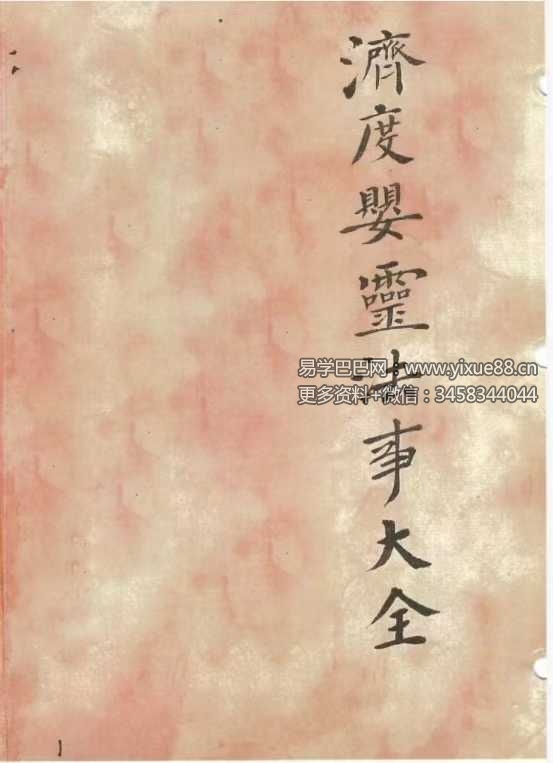 濟度嬰靈法事大全
易学巴巴网：www.yixue88.cn
更多资料+微信：3458344044